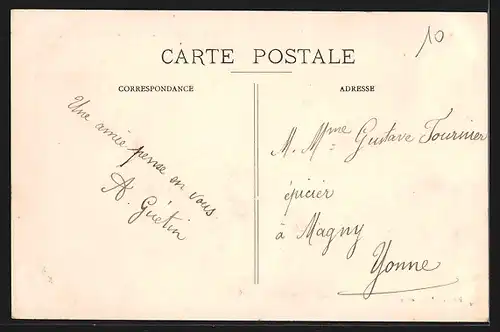 10
CARTE POSTALE
CORRESPONDANCE
Une amie pense en vous
A. Guétin
ADRESSE
M. Mme Gustave Fournier
épicier
à Magny
Yonne